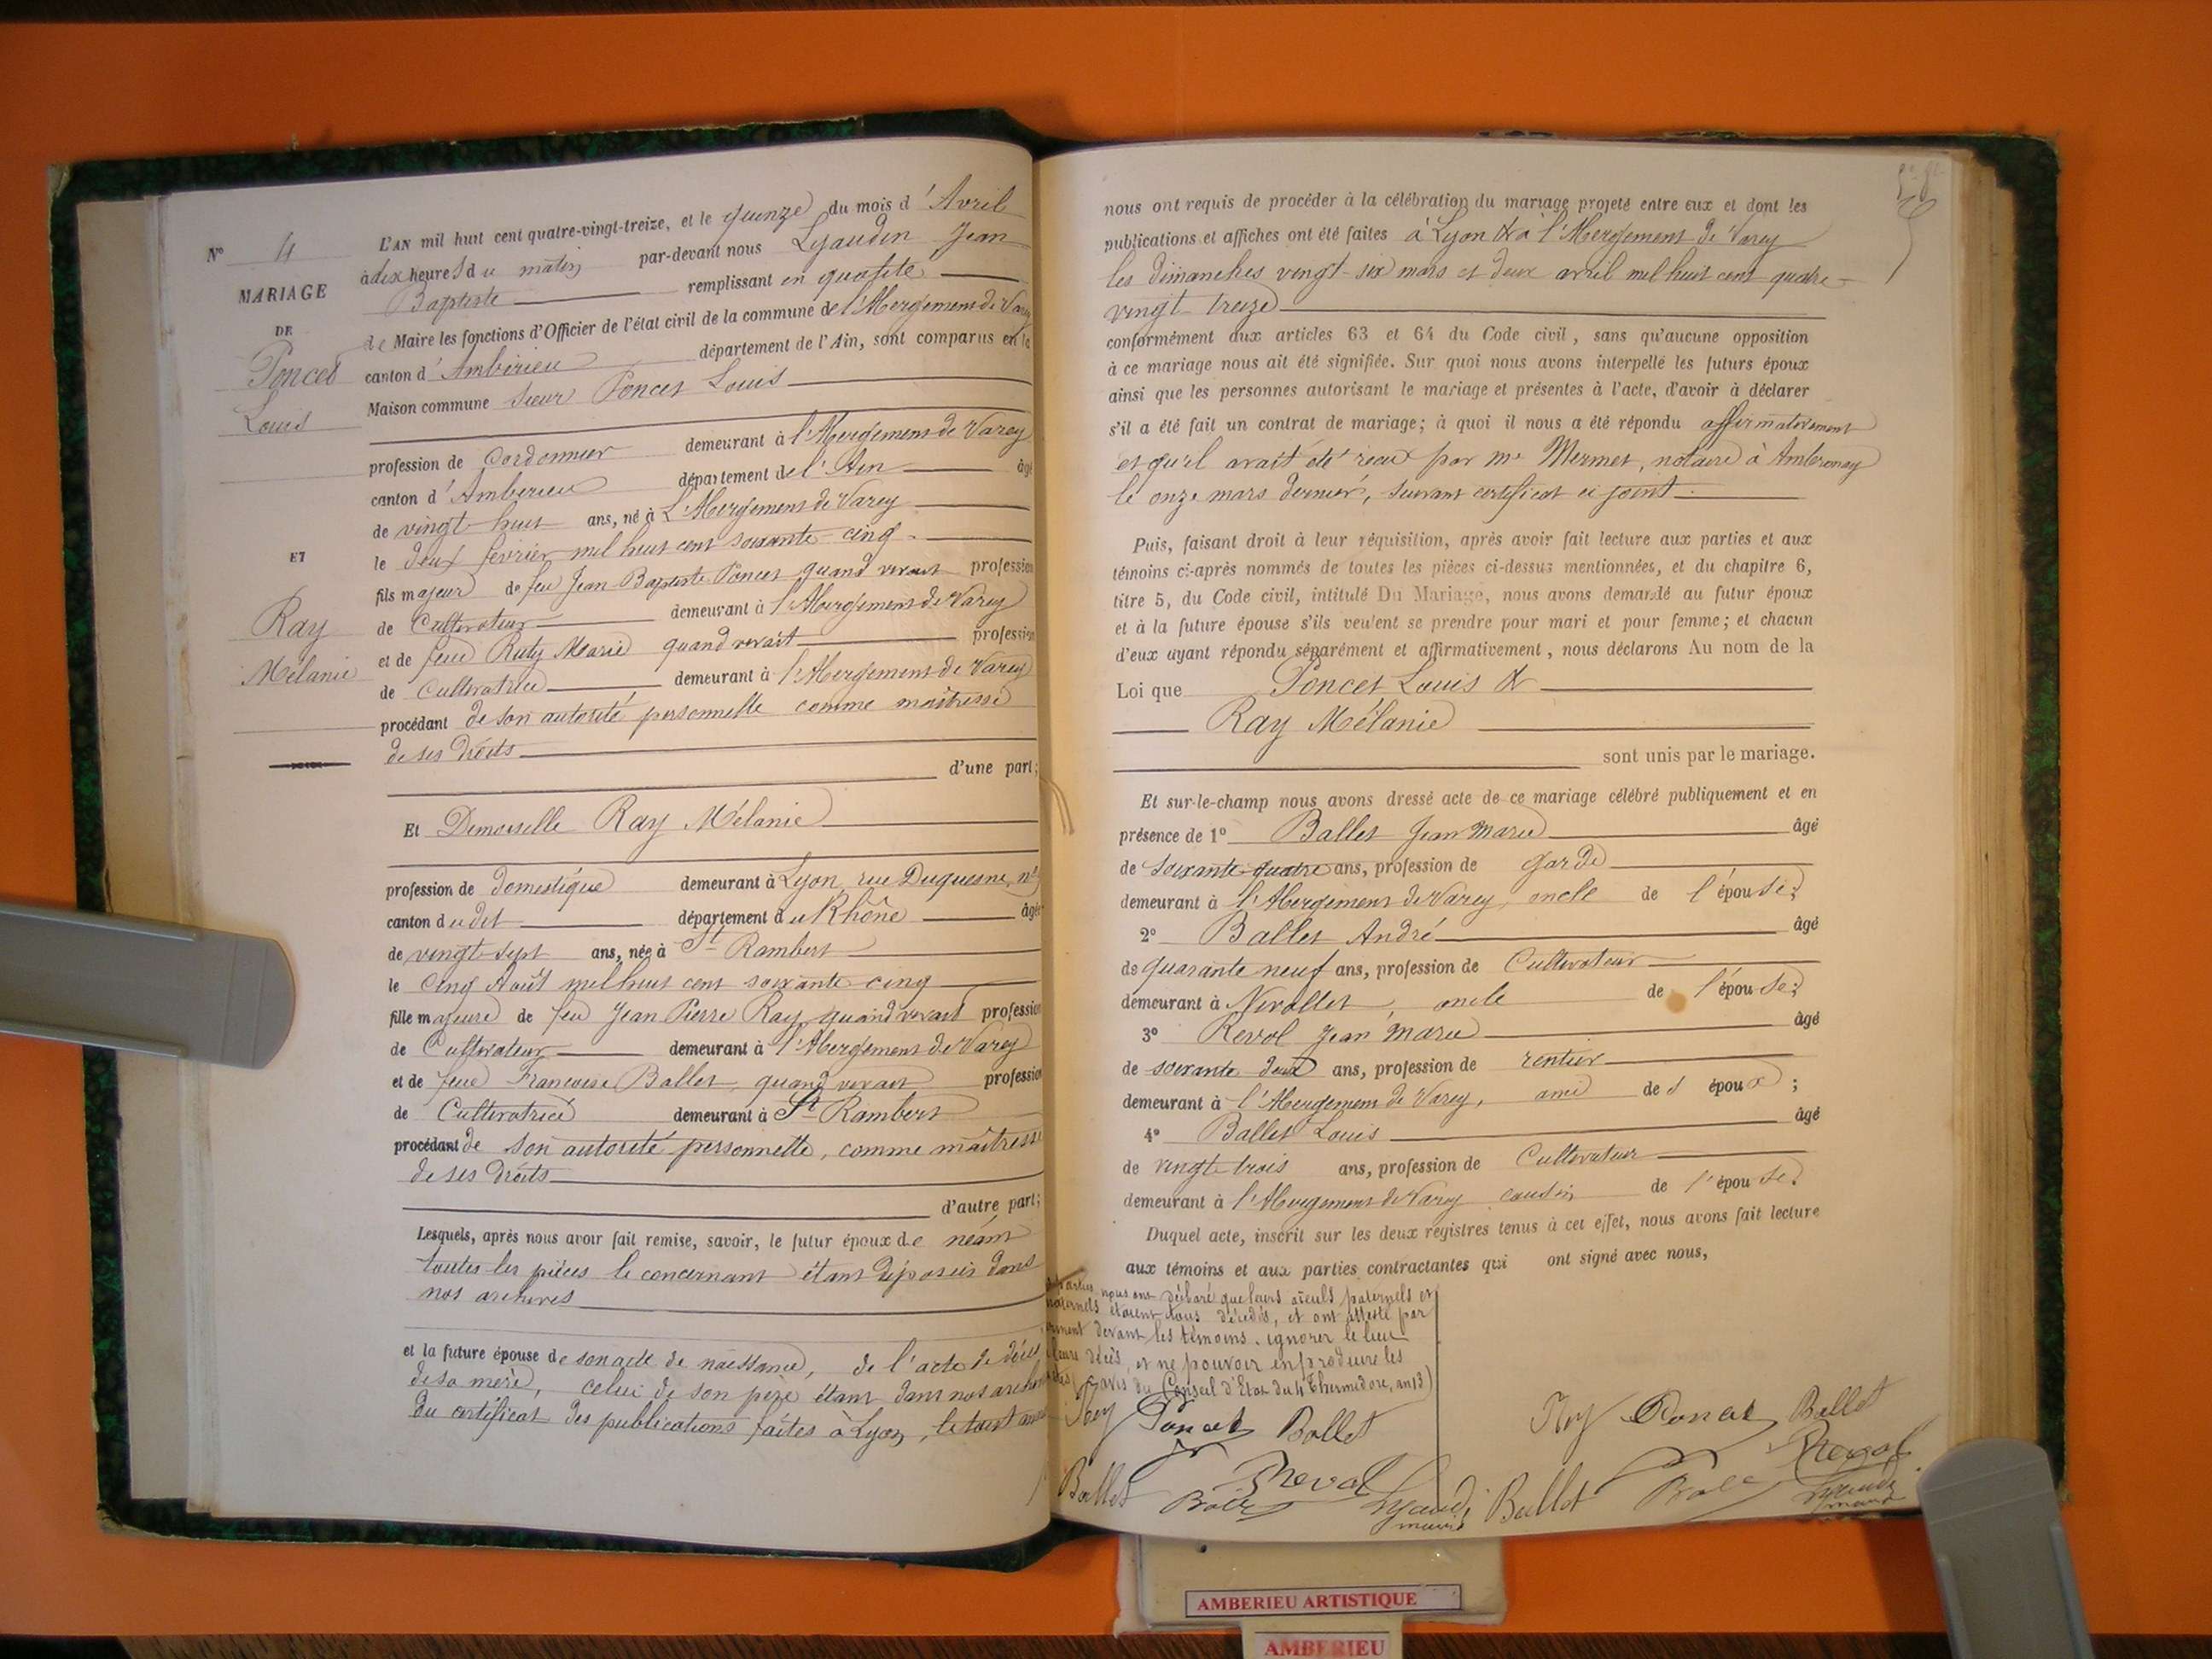 N° 4
MARIAGE
DE
Poncet
Louis
ET
Ray
Mélanie
L'AN mil huit cent quatre-vingt-treize, et le quinze du mois d'Avril
à dix heures du matin par-devant nous Lyaudin Jean
Baptiste remplissant en qualité
de Maire les fonctions d'Officier de l'état civil de la commune de l'Abergement de Varey
canton d'Ambérieu département de l'Ain, sont comparus en la
Maison commune Sieur Poncet Louis
profession de Cordonnier demeurant à l'Abergement de Varey
canton d'Ambérieu département de l'Ain âgé
de vingt-huit ans, né à L'Abergement de Varey
le deux février mil huit cent soixante-cinq
fils majeur de feu Jean Baptiste Poncet quand vivait profession
de Cultivateur demeurant à l'Abergement de Varey
et de feue Ruty Marie quand vivait profession
de Cultivatrice demeurant à l'Abergement de Varey
procédant de son autorité personnelle comme maîtresse
de ses droits
d'une part;
Et Demoiselle Ray Mélanie
profession de domestique demeurant à Lyon, rue Duquesne, n°
canton dudit département du Rhône âgée
de vingt-sept ans, née à St Rambert
le cinq Août mil huit cent soixante cinq
fille majeure de feu Jean Pierre Ray, quand vivait profession
de Cultivateur demeurant à l'Abergement de Varey
et de feue Françoise Ballet, quand vivait profession
de Cultivatrice demeurant à St Rambert
procédant de son autorité personnelle, comme maîtresse
de ses droits
d'autre part;
Lesquels, après nous avoir fait remise, savoir, le futur époux de néant
toutes les pièces le concernant étant déposées dans
nos archives
et la future épouse de son acte de naissance, de l'acte de décès
de sa mère, celui de son père étant dans nos archives
du certificat des publications faites à Lyon, le tout
nous ont requis de procéder à la célébration du mariage projeté entre eux et dont les
publications et affiches ont été faites à Lyon & à l'Abergement de Varey
les dimanches vingt-six mars et deux avril mil huit cent quatre-
vingt treize
conformément aux articles 63 et 64 du Code civil, sans qu'aucune opposition
à ce mariage nous ait été signifiée. Sur quoi nous avons interpellé les futurs époux
ainsi que les personnes autorisant le mariage et présentes à l'acte, d'avoir à déclarer
s'il a été fait un contrat de mariage; à quoi il nous a été répondu affirmativement
et qu'il avait été reçu par me Mermet, notaire à Ambronay
le onze mars dernier, suivant certificat ci joint.
Puis, faisant droit à leur réquisition, après avoir fait lecture aux parties et aux
témoins ci-après nommés de toutes les pièces ci-dessus mentionnées, et du chapitre 6,
titre 5, du Code civil, intitulé Du Mariage, nous avons demandé au futur époux
et à la future épouse s'ils veulent se prendre pour mari et pour femme; et chacun
d'eux ayant répondu séparément et affirmativement, nous déclarons Au nom de la
Loi que Poncet Louis &
Ray Mélanie
sont unis par le mariage.
Et sur-le-champ nous avons dressé acte de ce mariage célébré publiquement et en
présence de 1° Ballet Jean Marie âgé
de soixante-quatre ans, profession de garde
demeurant à l'Abergement de Varey, oncle de l'épouse;
2° Ballet André âgé
de quarante neuf ans, profession de Cultivateur
demeurant à Nivollet, oncle de l'épouse;
3° Revol Jean Marie âgé
de soixante deux ans, profession de rentier
demeurant à l'Abergement de Varey, ami de l'époux;
4° Ballet Louis âgé
de vingt-trois ans, profession de Cultivateur
demeurant à l'Abergement de Varey cousin de l'épouse.
Duquel acte, inscrit sur les deux registres tenus à cet effet, nous avons fait lecture
aux témoins et aux parties contractantes qui ont signé avec nous,
parties nous ont déclaré que leurs aïeuls paternels et
maternels étaient tous décédés, et ont attesté par
serment devant les témoins, ignorer le lieu
leurs décès, et ne pouvoir en produire les
actes (avis du Conseil d'Etat du 4 Thermidor, an 13)
Poncet Ballet
Ballet Revol Lyaudin
maire
Poncet Ballet
Ballet Revol
Lyaudin
maire
AMBERIEU ARTISTIQUE
AMBERIEU